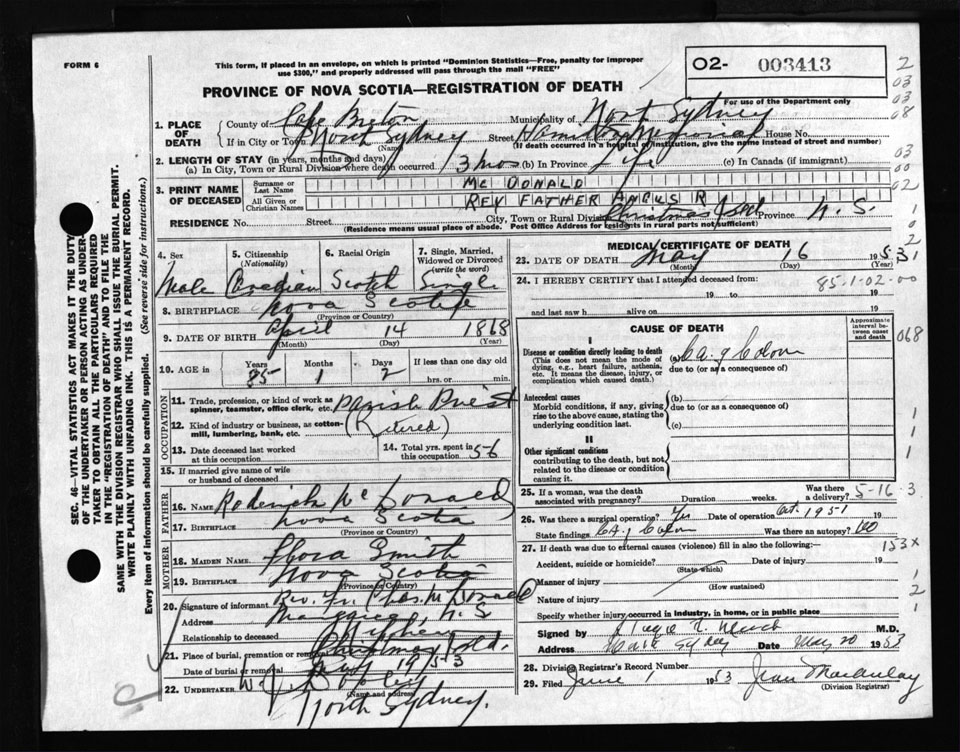 FORM 6
This form, if placed in an envelope, on which is printed "Dominion Statistics—Free, penalty for improper
use $300," and properly addressed will pass through the mail "FREE"
O2- 003413
PROVINCE OF NOVA SCOTIA—REGISTRATION OF DEATH
For use of the Department only
1. PLACE OF DEATH
County of Cape Breton Municipality of North Sydney
If in City or Town North Sydney Street Hamilton Memorial House No.
(Name) (If death occurred in a hospital or institution, give the name instead of street and number)
2. LENGTH OF STAY (in years, months and days)
(a) In City, Town or Rural Division where death occurred 3 mos (b) In Province Life (c) In Canada (if immigrant)
3. PRINT NAME OF DECEASED
Surname or Last Name Mc DONALD
All Given or Christian Names REV FATHER ANGUS R
RESIDENCE No. Street City, Town or Rural Division Christmas Isld Province N. S.
(Residence means usual place of abode. Post Office Address for residents in rural parts not sufficient)
4. Sex Male
5. Citizenship (Nationality) Canadian
6. Racial Origin Scotch
7. Single, Married, Widowed or Divorced (write the word) Single
8. BIRTHPLACE Nova Scotia
(Province or Country)
9. DATE OF BIRTH April 14 1868
(Month) (Day) (Year)
10. AGE in Years 85 Months 1 Days 2 If less than one day old hrs. or min.
OCCUPATION
11. Trade, profession, or kind of work as spinner, teamster, office clerk, etc. Parish Priest
12. Kind of industry or business, as cotton-mill, lumbering, bank, etc. (Retired)
13. Date deceased last worked at this occupation
14. Total yrs. spent in this occupation 56
15. If married give name of wife or husband of deceased
FATHER
16. Name Roderick McDonald
17. Birthplace Nova Scotia
(Province or Country)
MOTHER
18. MAIDEN NAME Flora Smith
19. BIRTHPLACE Nova Scotia
(Province or Country)
20. Signature of informant Rev. Fr. Chas. McDonald
Address N. S
Relationship to deceased Nephew
21. Place of burial, cremation or removal Christmas Isld.
Date of burial or removal 1953
22. UNDERTAKER W. J. Dooley
(Name and address)
North Sydney.
MEDICAL CERTIFICATE OF DEATH
23. DATE OF DEATH May 16 1953
(Month) (Day) (Year)
24. I HEREBY CERTIFY that I attended deceased from: 85-1-02-00
19 to 19
and last saw h alive on 19
CAUSE OF DEATH
Approximate interval between onset and death
I
Disease or condition directly leading to death (a) Ca. of Colon
(This does not mean the mode of dying, e.g., heart failure, asthenia, etc. It means the disease, injury, or complication which caused death.)
due to (or as a consequence of)
Antecedent causes (b)
Morbid conditions, if any, giving rise to the above cause, stating the underlying condition last.
due to (or as a consequence of)
(c)
II
Other significant conditions contributing to the death, but not related to the disease or condition causing it.
25. If a woman, was the death associated with pregnancy? Duration weeks. Was there a delivery? 5-16-3
26. Was there a surgical operation? Yes Date of operation Oct. 1951 19
State findings Ca. of Colon Was there an autopsy? No
27. If death was due to external causes (violence) fill in also the following:— 153X
Accident, suicide or homicide? Date of injury 19
(State which)
Manner of injury
(How sustained)
Nature of injury
Specify whether injury occurred in industry, in home, or in public place
Signed by M.D.
Address Date May 20 1953
28. Division Registrar's Record Number
29. Filed June 1 1953 Jean Macaulay
(Division Registrar)
2
03
03
08
03
00
02
1
0
2
1
068
1
1
1
1
2
1
SEC. 46—VITAL STATISTICS ACT MAKES IT THE DUTY
OF THE UNDERTAKER OR PERSON ACTING AS UNDER-
TAKER TO OBTAIN ALL THE PARTICULARS REQUIRED
IN THE "REGISTRATION OF DEATH" AND TO FILE THE
SAME WITH THE DIVISION REGISTRAR WHO SHALL ISSUE THE BURIAL PERMIT.
WRITE PLAINLY WITH UNFADING INK. THIS IS A PERMANENT RECORD.
Every item of information should be carefully supplied. (See reverse side for instructions.)